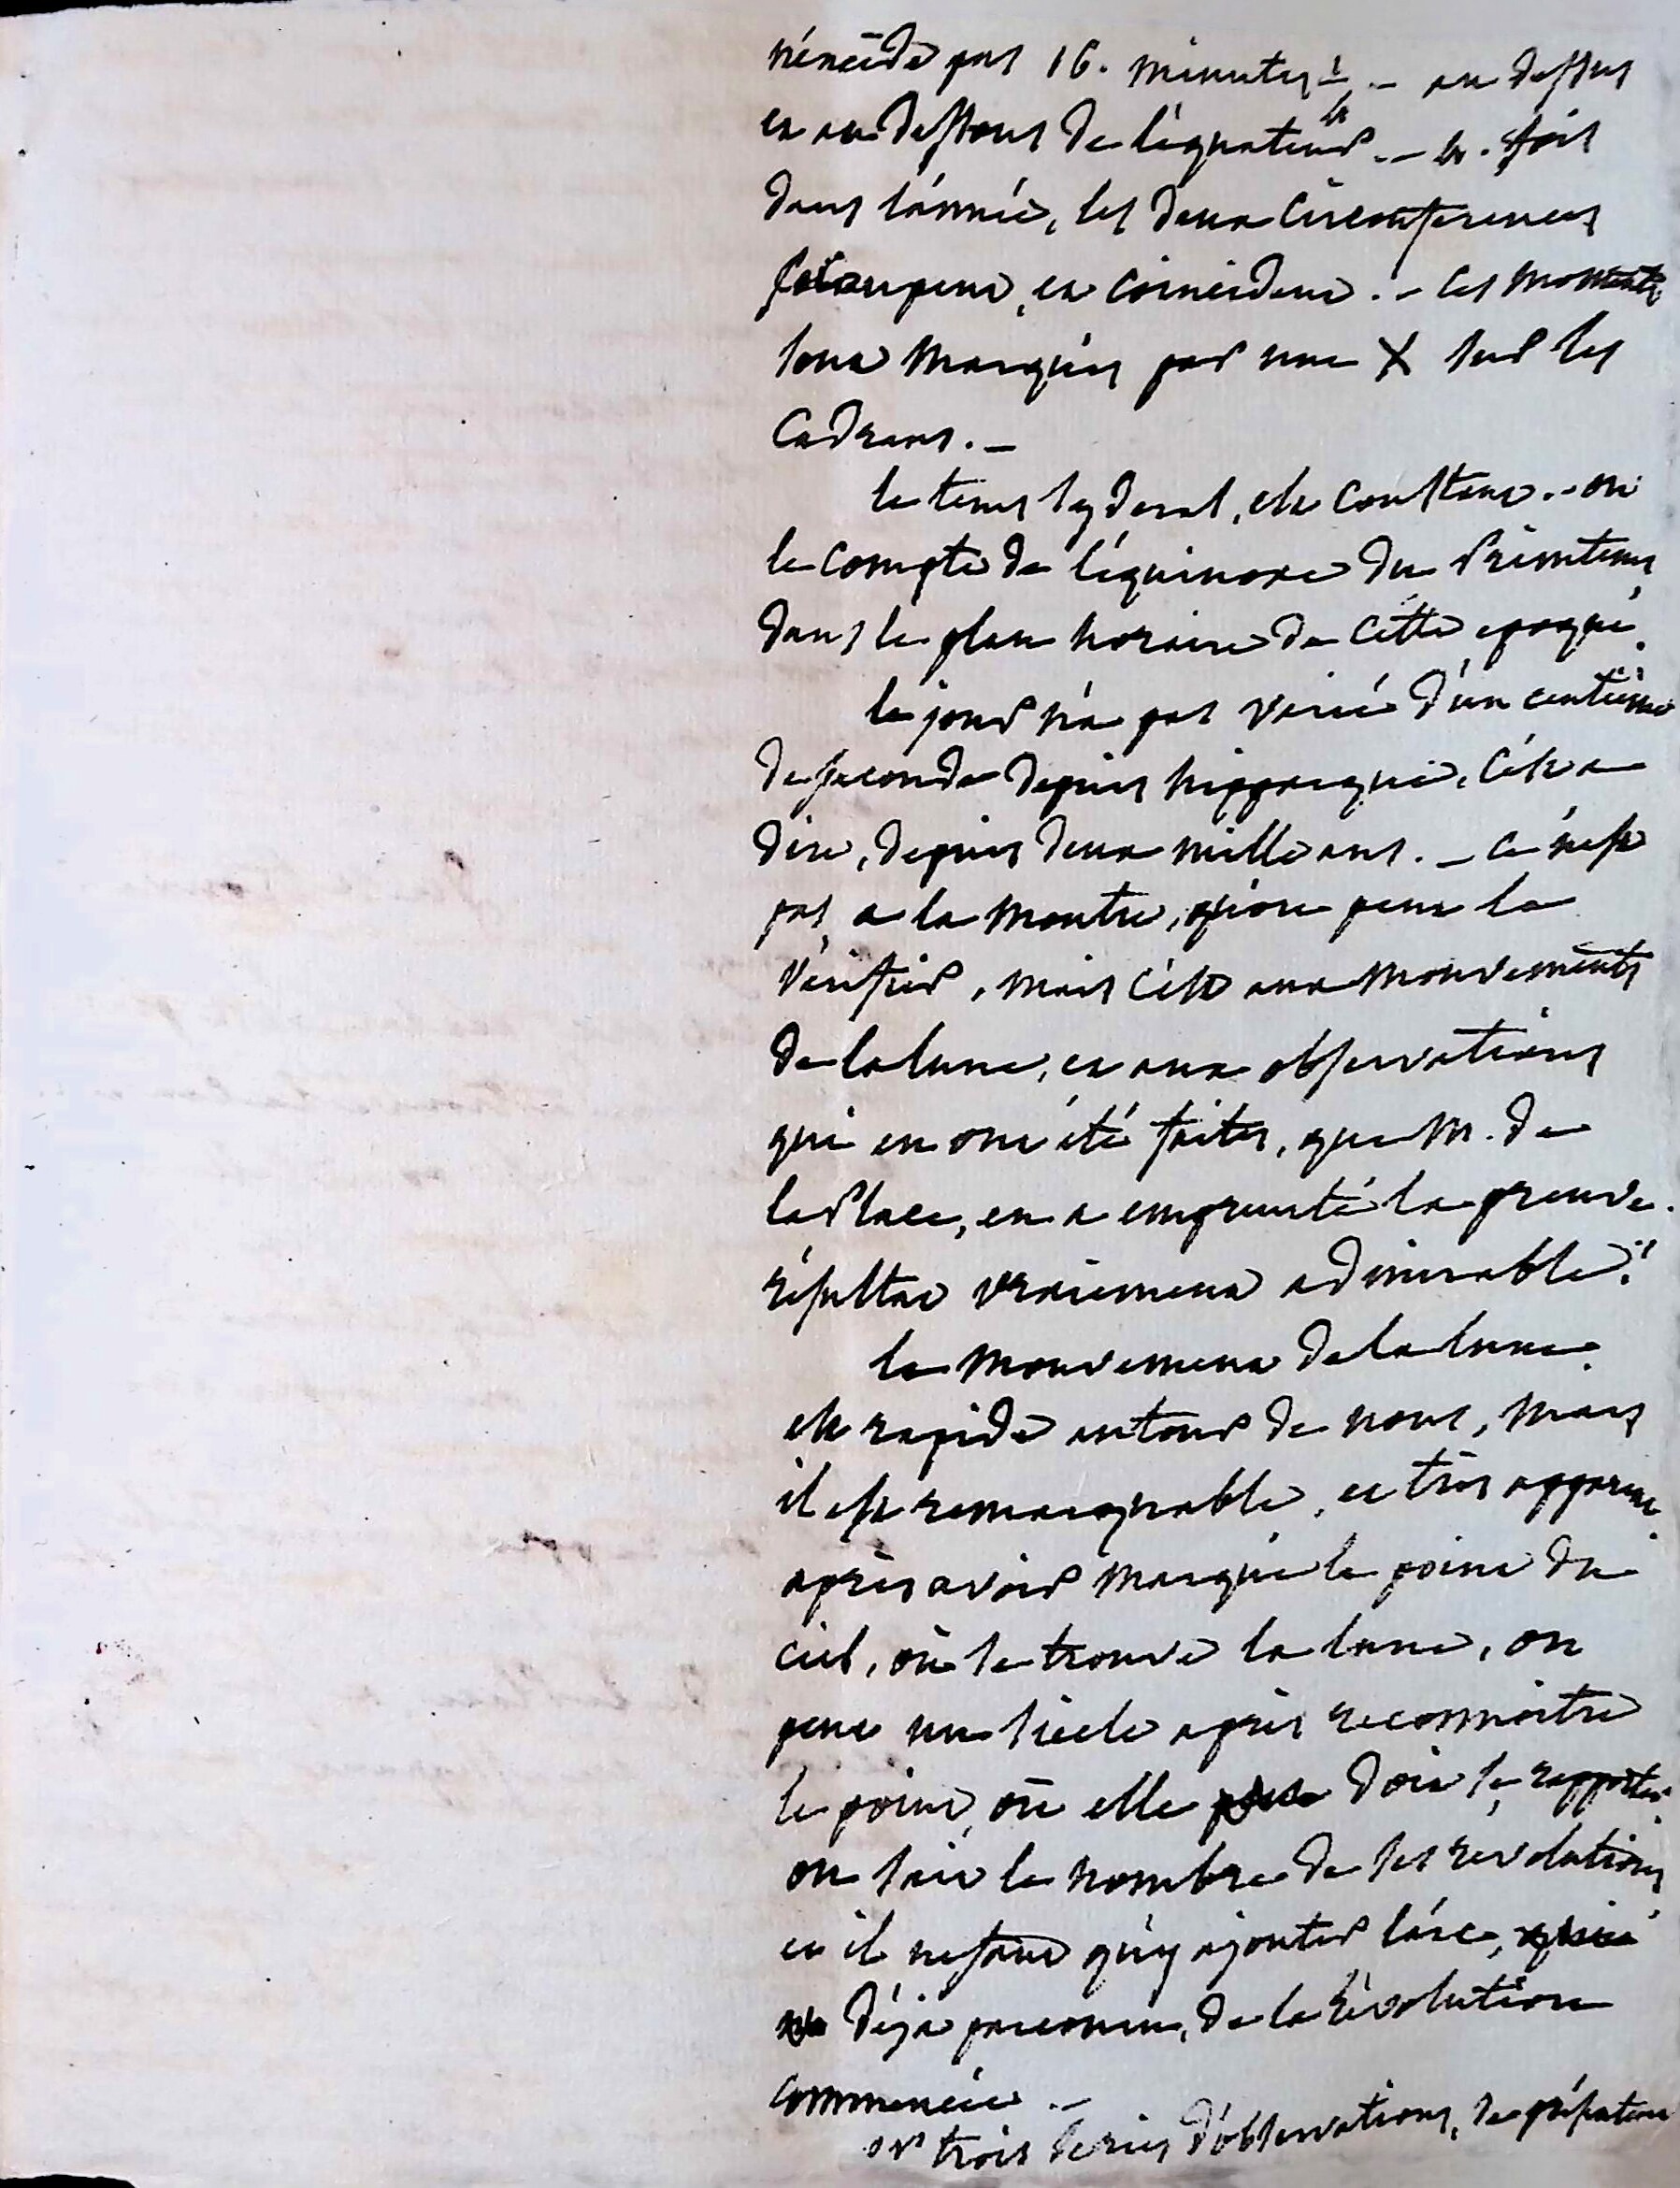 n'éxcéde pas 16. minutes 1/4 – au dessus
et au dessous de l'équateur. – 4. fois
dans l'année, les deux circonferences
se coupent, et coincident. – ces moments
sont marqués par une X sur les
cadrans. –
le tems syderal, est constant. – on
le compte de l'équinoxe du Printems,
dans le plan horaire de cette epoque.
le jour n'a pas varié d'un centième
de seconde depuis hipparque, c'est a
dire, depuis deux mille ans. – ce n'est
pas a la montre, qu'on peut la
vérifier, mais c'est aux mouvements
de la lune, et aux observations
qui en ont été faites, que M. de
la Place, en a emprunté la preuve.
résultat vraiement admirable!
le mouvement de la lune
est rapide autour de nous, mais
il est remarquable, et très apparent.
après avoir marqué le point du
ciel, où se trouve la lune, on
peut un siècle après reconnoitre
le point, où elle doit se rapporter.
on sait le nombre de ses révolutions,
et il ne faut qu'y ajouter l'arc,
déjà parcouru, de la révolution
commencée. –
or trois series d'observations, se présentent